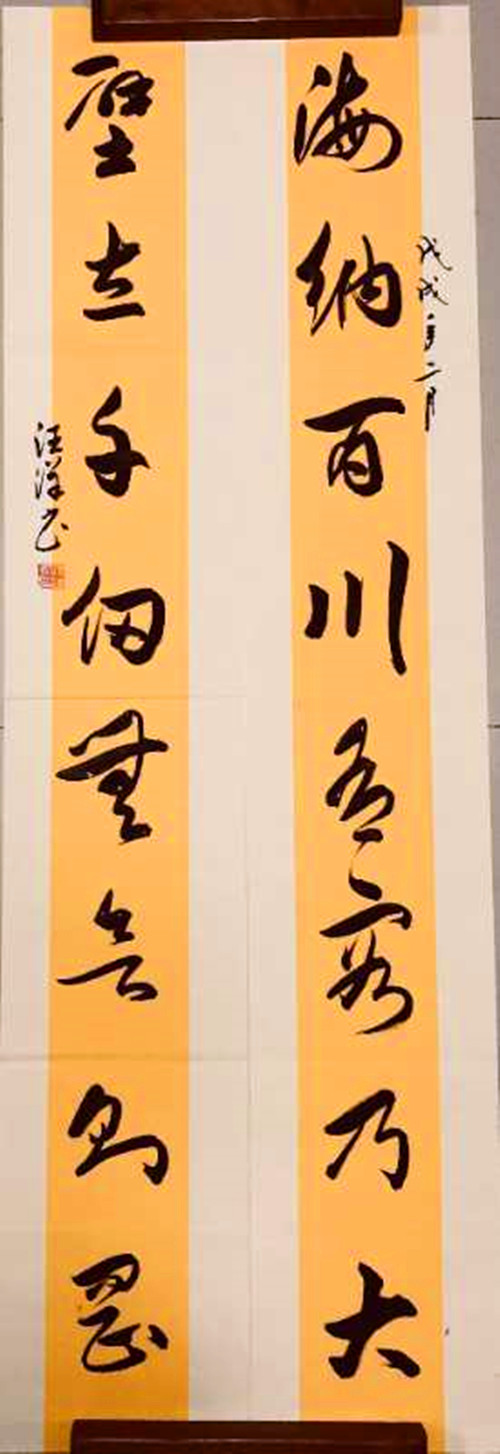 戊戌年二月
海纳百川有容乃大
壁立千仞無欲则罡
汪洋书